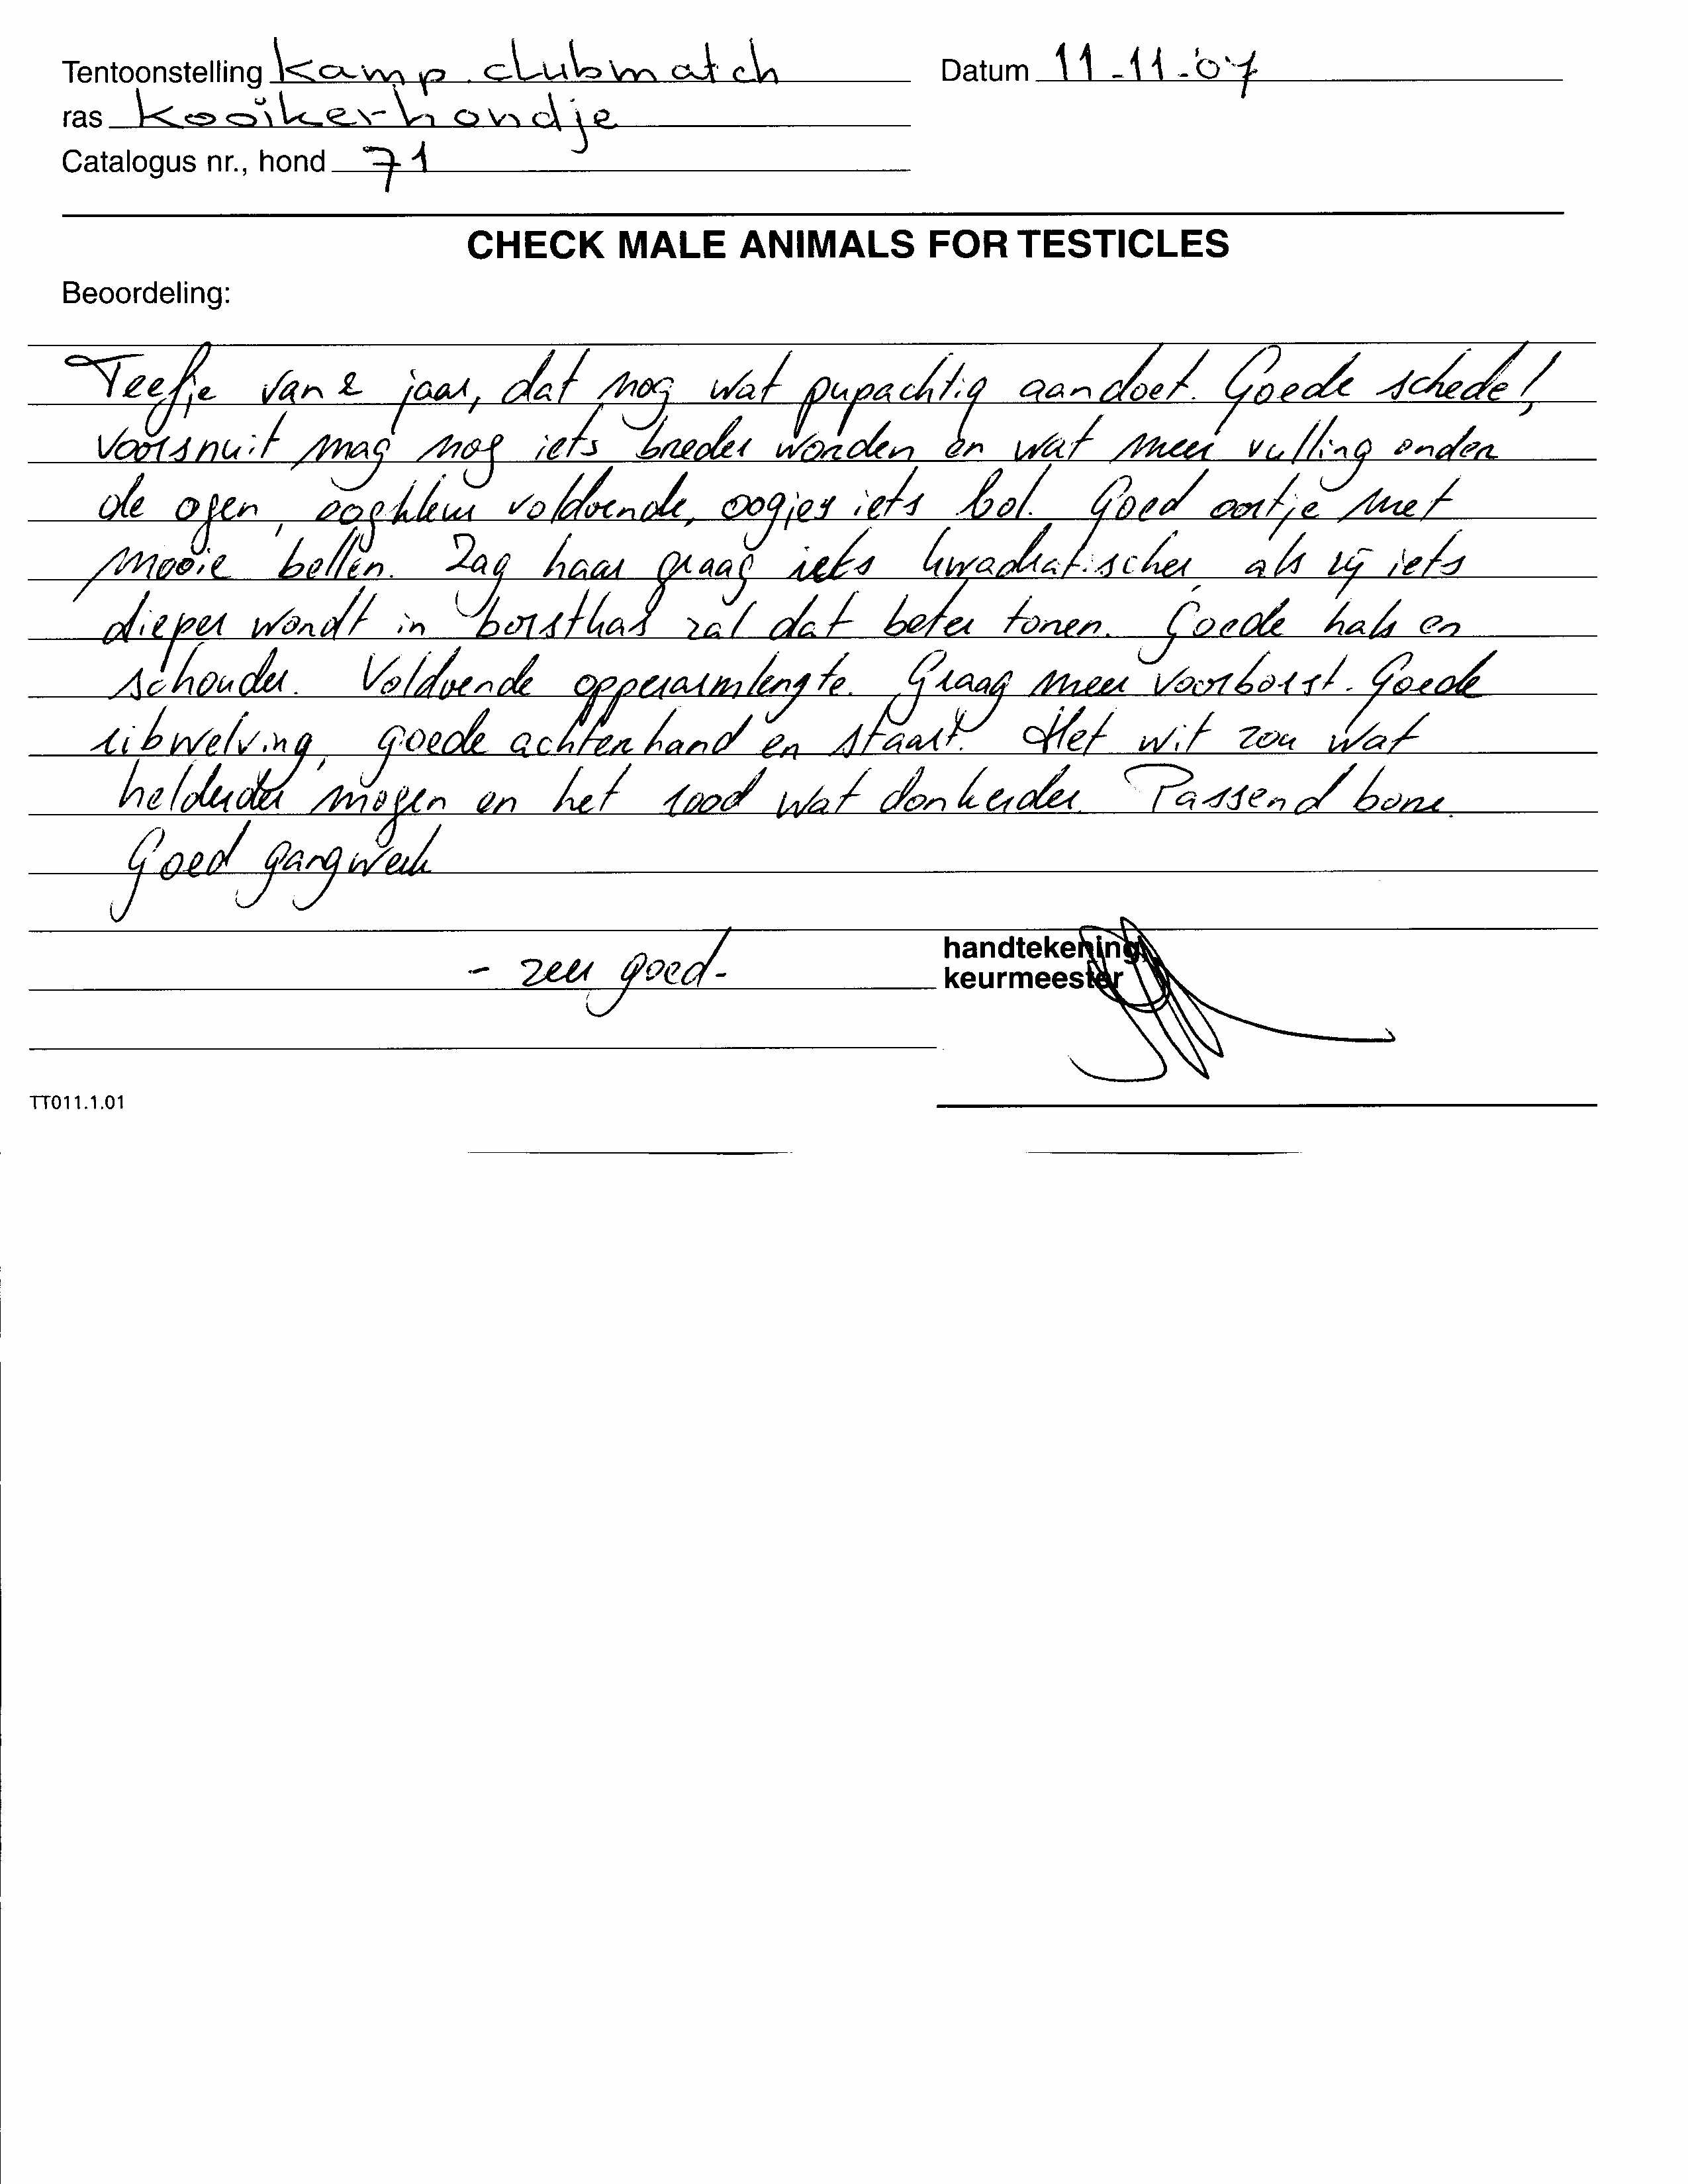 Tentoonstelling Kamp. clubmatch Datum 11-11-'07
ras Kooikerhondje
Catalogus nr., hond 71
CHECK MALE ANIMALS FOR TESTICLES
Beoordeling:
Teefje van 2 jaar, dat nog wat pupachtig aandoet. Goede schedel,
voorsnuit mag nog iets breder worden en wat meer vulling onder
de ogen, oogkleur voldoende, oogjes iets bol. Goed oortje met
mooie bellen. Zag haar graag iets kwadratischer, als zij iets
dieper wordt in borstkas zal dat beter tonen. Goede hals en
schouder. Voldoende opperarmlengte. Graag meer voorborst. Goede
ribwelving, goede achterhand en staart. Het wit zou wat
helderder mogen en het rood wat donkerder. Passend bone.
Goed gangwerk
- zeer goed -
handtekening,
keurmeester
TT011.1.01